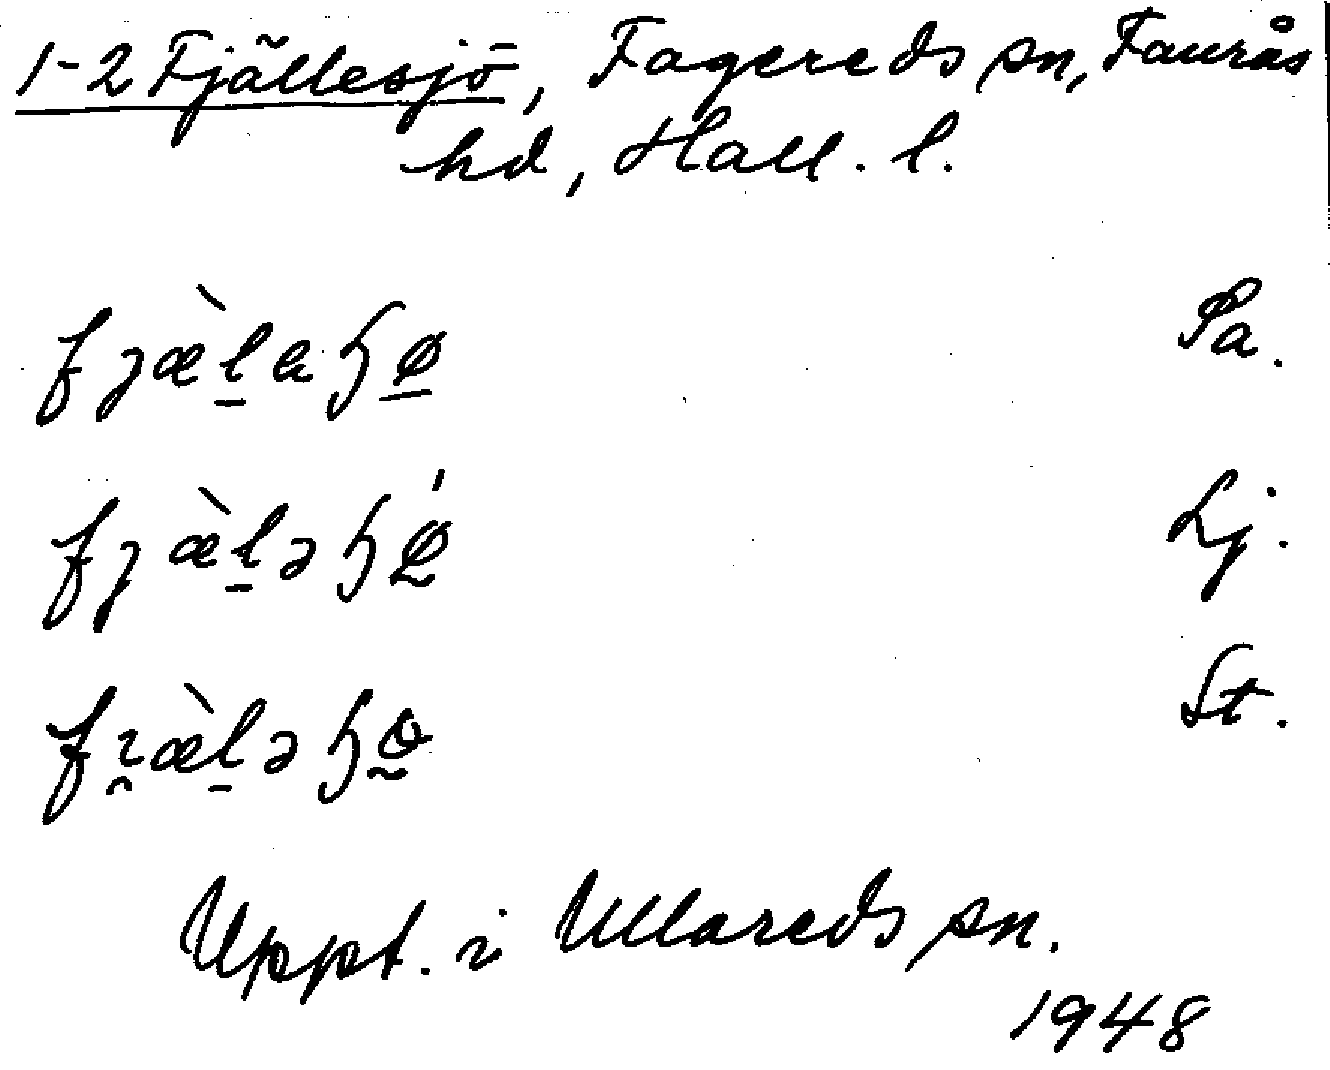 1-2 Fjällesjö, Fagereds sn, Faurås
hd, Hall. l.
fjæ̀l̠aɧø̠ Pa.
fjæ̀l̠əɧǿ̰ Lj.
fı̯æ̀l̠əɧø̰ St.
Uppt. i Ullareds sn.
1948